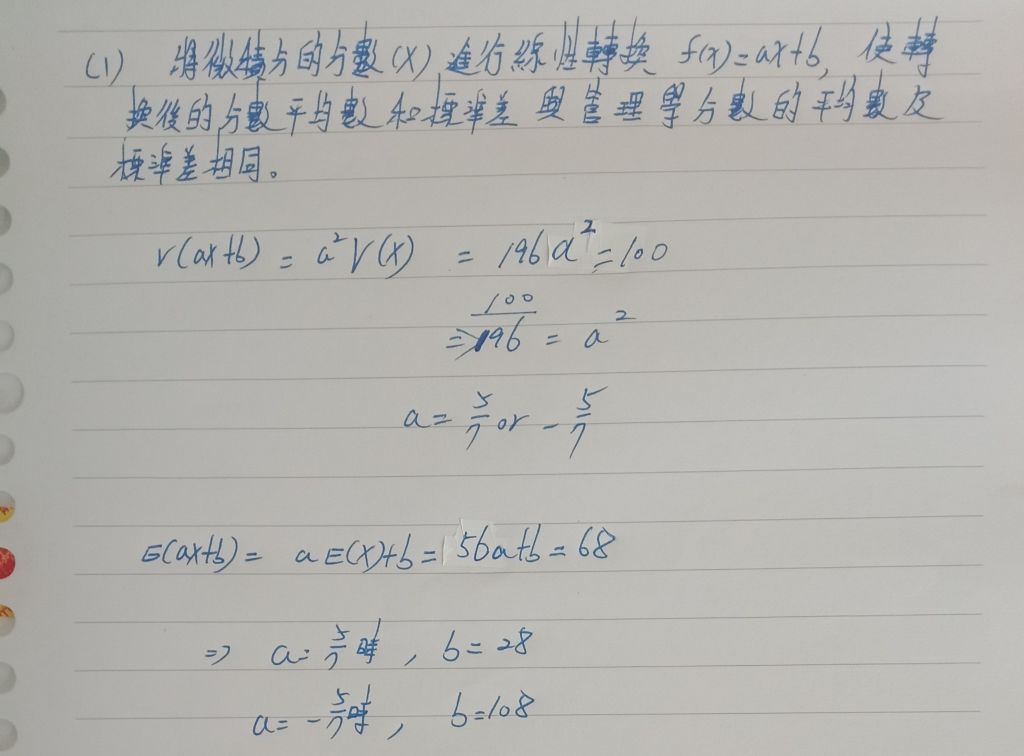 (1) 將微積分的分數(X)進行線性轉換 f(x)=ax+b, 使轉
換後的分數平均數和標準差與管理學分數的平均數及
標準差相同。
V(ax+b) = a²V(X) = 196a² = 100
⇒ 100/196 = a²
a = 5/7 or - 5/7
E(ax+b) = aE(X)+b = 56a+b = 68
⇒ a = 5/7時, b = 28
a = - 5/7時, b = 108